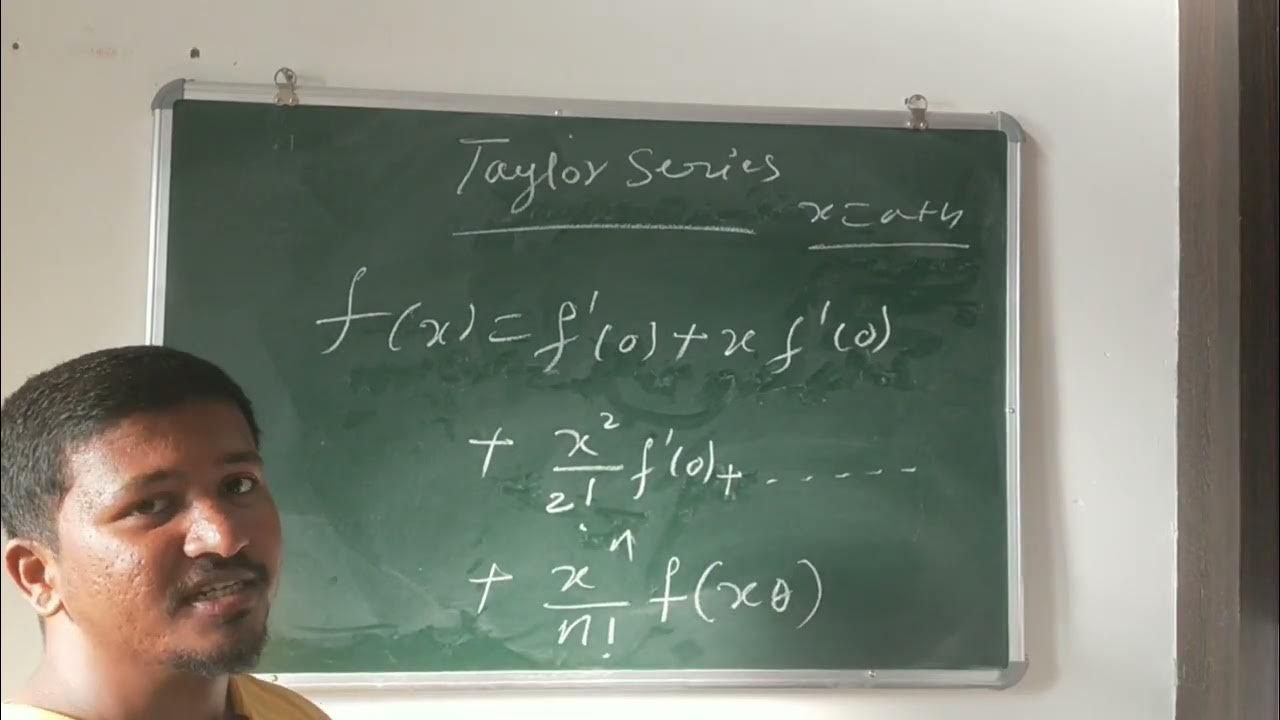 Taylor Series
x = a+h
f(x) = f'(0) + x f'(0)
+ x²/2! f'(0) + - - - - - -
+ xⁿ/n! f(xθ)